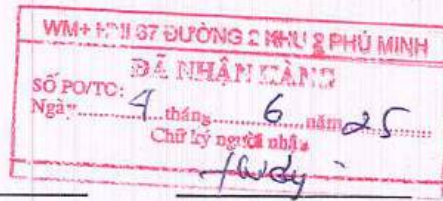 WM+ HNI 67 ĐƯỜNG 2 KHU 8 PHÚ MINH
ĐÃ NHẬN HÀNG
SỐ PO/TC:
Ngày 4 tháng 6 năm 25
Chữ ký người nhận